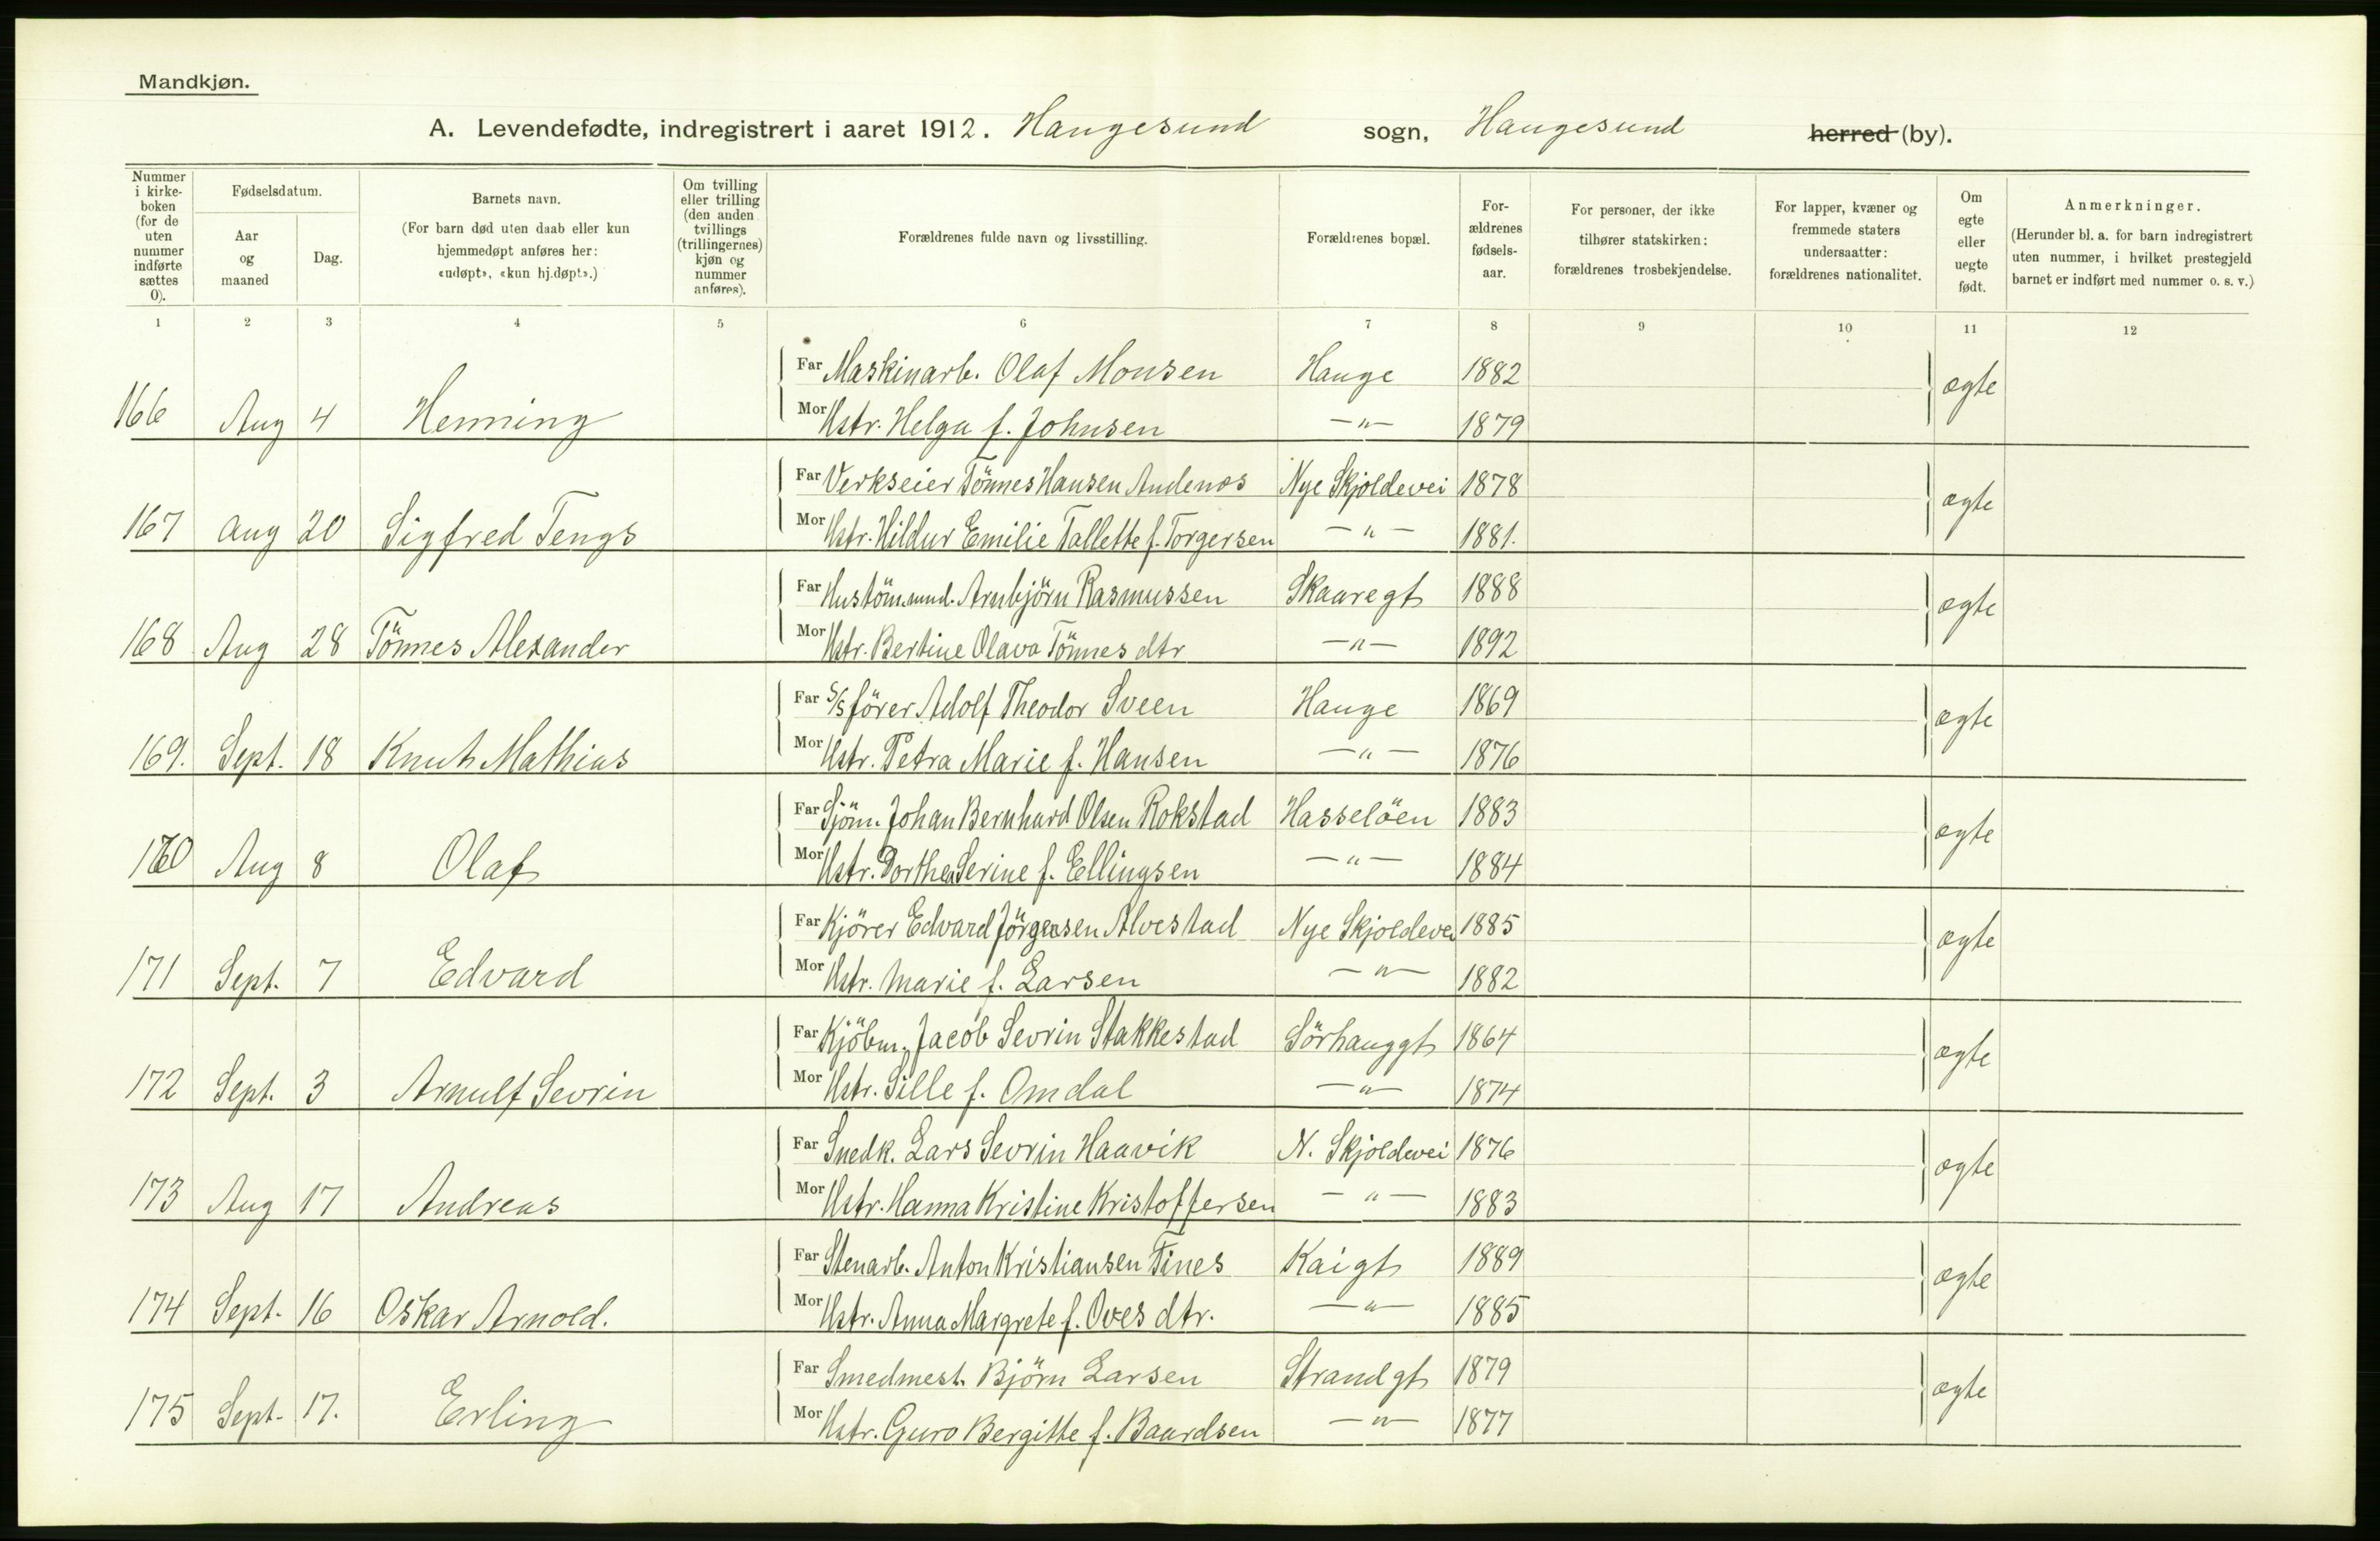 Mandkjøn.
A. Levendefødte, indregistrert i aaret 1912. Haugesund sogn, Haugesund herred (by).
Nummer i kirke-boken (for de uten nummer indførte sættes 0).
Fødselsdatum.
Aar og maaned
Dag.
Barnets navn.
(For barn død uten daab eller kun hjemmedøpt anføres her: «udøpt», «kun hj.døpt».)
Om tvilling eller trilling (den anden tvillings (trillingernes) kjøn og nummer anføres).
Forældrenes fulde navn og livsstilling.
Forældrenes bopæl.
For-ældrenes fødsels-aar.
For personer, der ikke tilhører statskirken: forældrenes trosbekjendelse.
For lapper, kvæner og fremmede staters undersaatter: forældrenes nationalitet.
Om egte eller uegte født.
Anmerkninger.
(Herunder bl. a. for barn indregistrert uten nummer, i hvilket prestegjeld barnet er indført med nummer o. s. v.)
1 2 3 4 5 6 7 8 9 10 11 12
Far Maskinarb. Olaf Monsen Hauge 1882 ægte
166 Aug 4 Henning Mor Hstr. Helga f. Johnsen —"— 1879
Far Verkseier Tönnes Hansen Andenæs Nye Skjoldevei 1878 ægte
167 Aug 20 Sigfred Tengs Mor Hstr. Hildur Emilie Tallette f. Torgersen —"— 1881.
Far Hustöm.mnd. Arnbjörn Rasmussen Skaaregt 1888 ægte
168 Aug 28 Tönnes Alexander Mor Hstr. Bertine Olava Tönnes dtr —"— 1892
Far S/S förer Adolf Theodor Sveen Hauge 1869 ægte
169. Sept. 18 Knut Mathias Mor Hstr. Petra Marie f. Hansen —"— 1876
Far Sjöm. Johan Bernhard Olsen Rokstad Hasselöen 1883 ægte
170 Aug 8 Olaf Mor Hstr. Dorthea Serine f. Ellingsen —"— 1884
Far Kjörer Edvard Jörgensen Alvestad Nye Skjoldevei 1885 ægte
171 Sept. 7 Edvard Mor Hstr. Marie f. Larsen —"— 1882
Far Kjöbm. Jacob Sevrin Stakkestad Sörhauggt 1864 ægte
172 Sept. 3 Arnulf Sevrin Mor Hstr. Sille f. Omdal —"— 1874
Far Snedk. Lars Sevrin Haavik N. Skjoldevei 1876 ægte
173 Aug 17 Andreas Mor Hstr. Hanna Kristine Kristoffersen —"— 1883
Far Stenarb. Anton Kristiansen Tines Kaigt 1889 ægte
174 Sept. 16 Oskar Arnold. Mor Hstr. Anna Margrete f. Oves dtr. —"— 1885
Far Smedmest. Björn Larsen Strandgt 1879 ægte
175 Sept. 17. Erling Mor Hstr. Guro Bergitte f. Baardsen —"— 1877